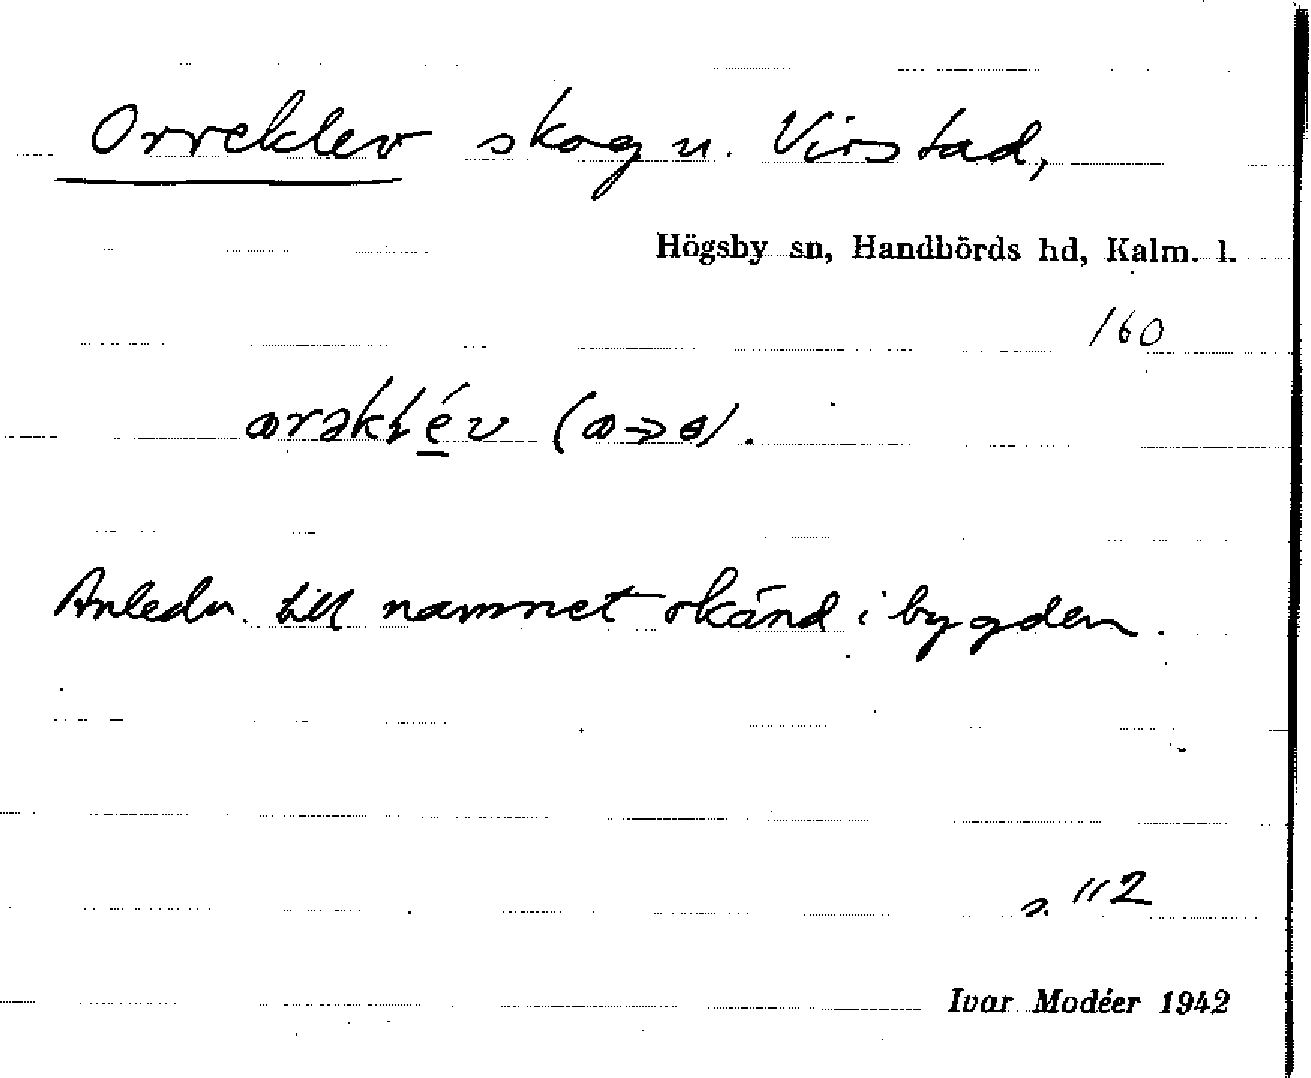 Orreklev skog u. Virstad,
Högsby sn, Handbörds hd, Kalm. l.
160
Anledn. till namnet okänd i bygden.
s. 112
Ivar Modéer 1942